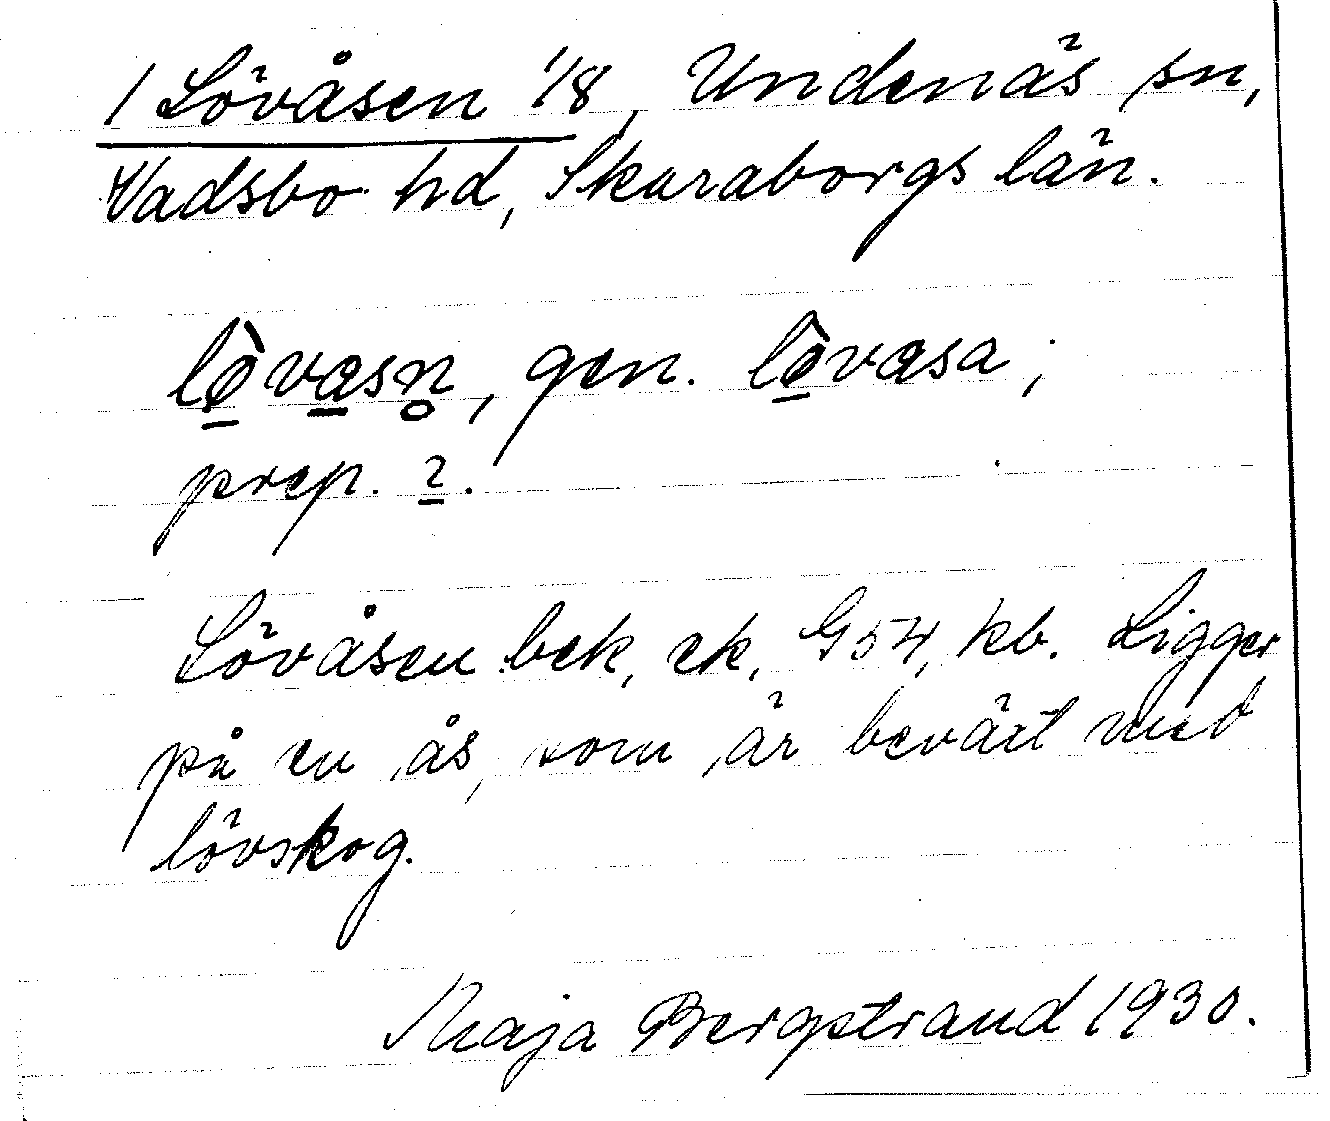 1 Lövåsen 1/8, Undenäs sn,
Vadsbo hd, Skaraborgs län.
lø̠̀va̠sn̥, gen. lø̠̀vasa;
prep. 2̠.
Lövåsen bek, ek, G54, kb. Ligger
på en ås, som är beväxt med
lövskog.
Maja Bergstrand 1930.